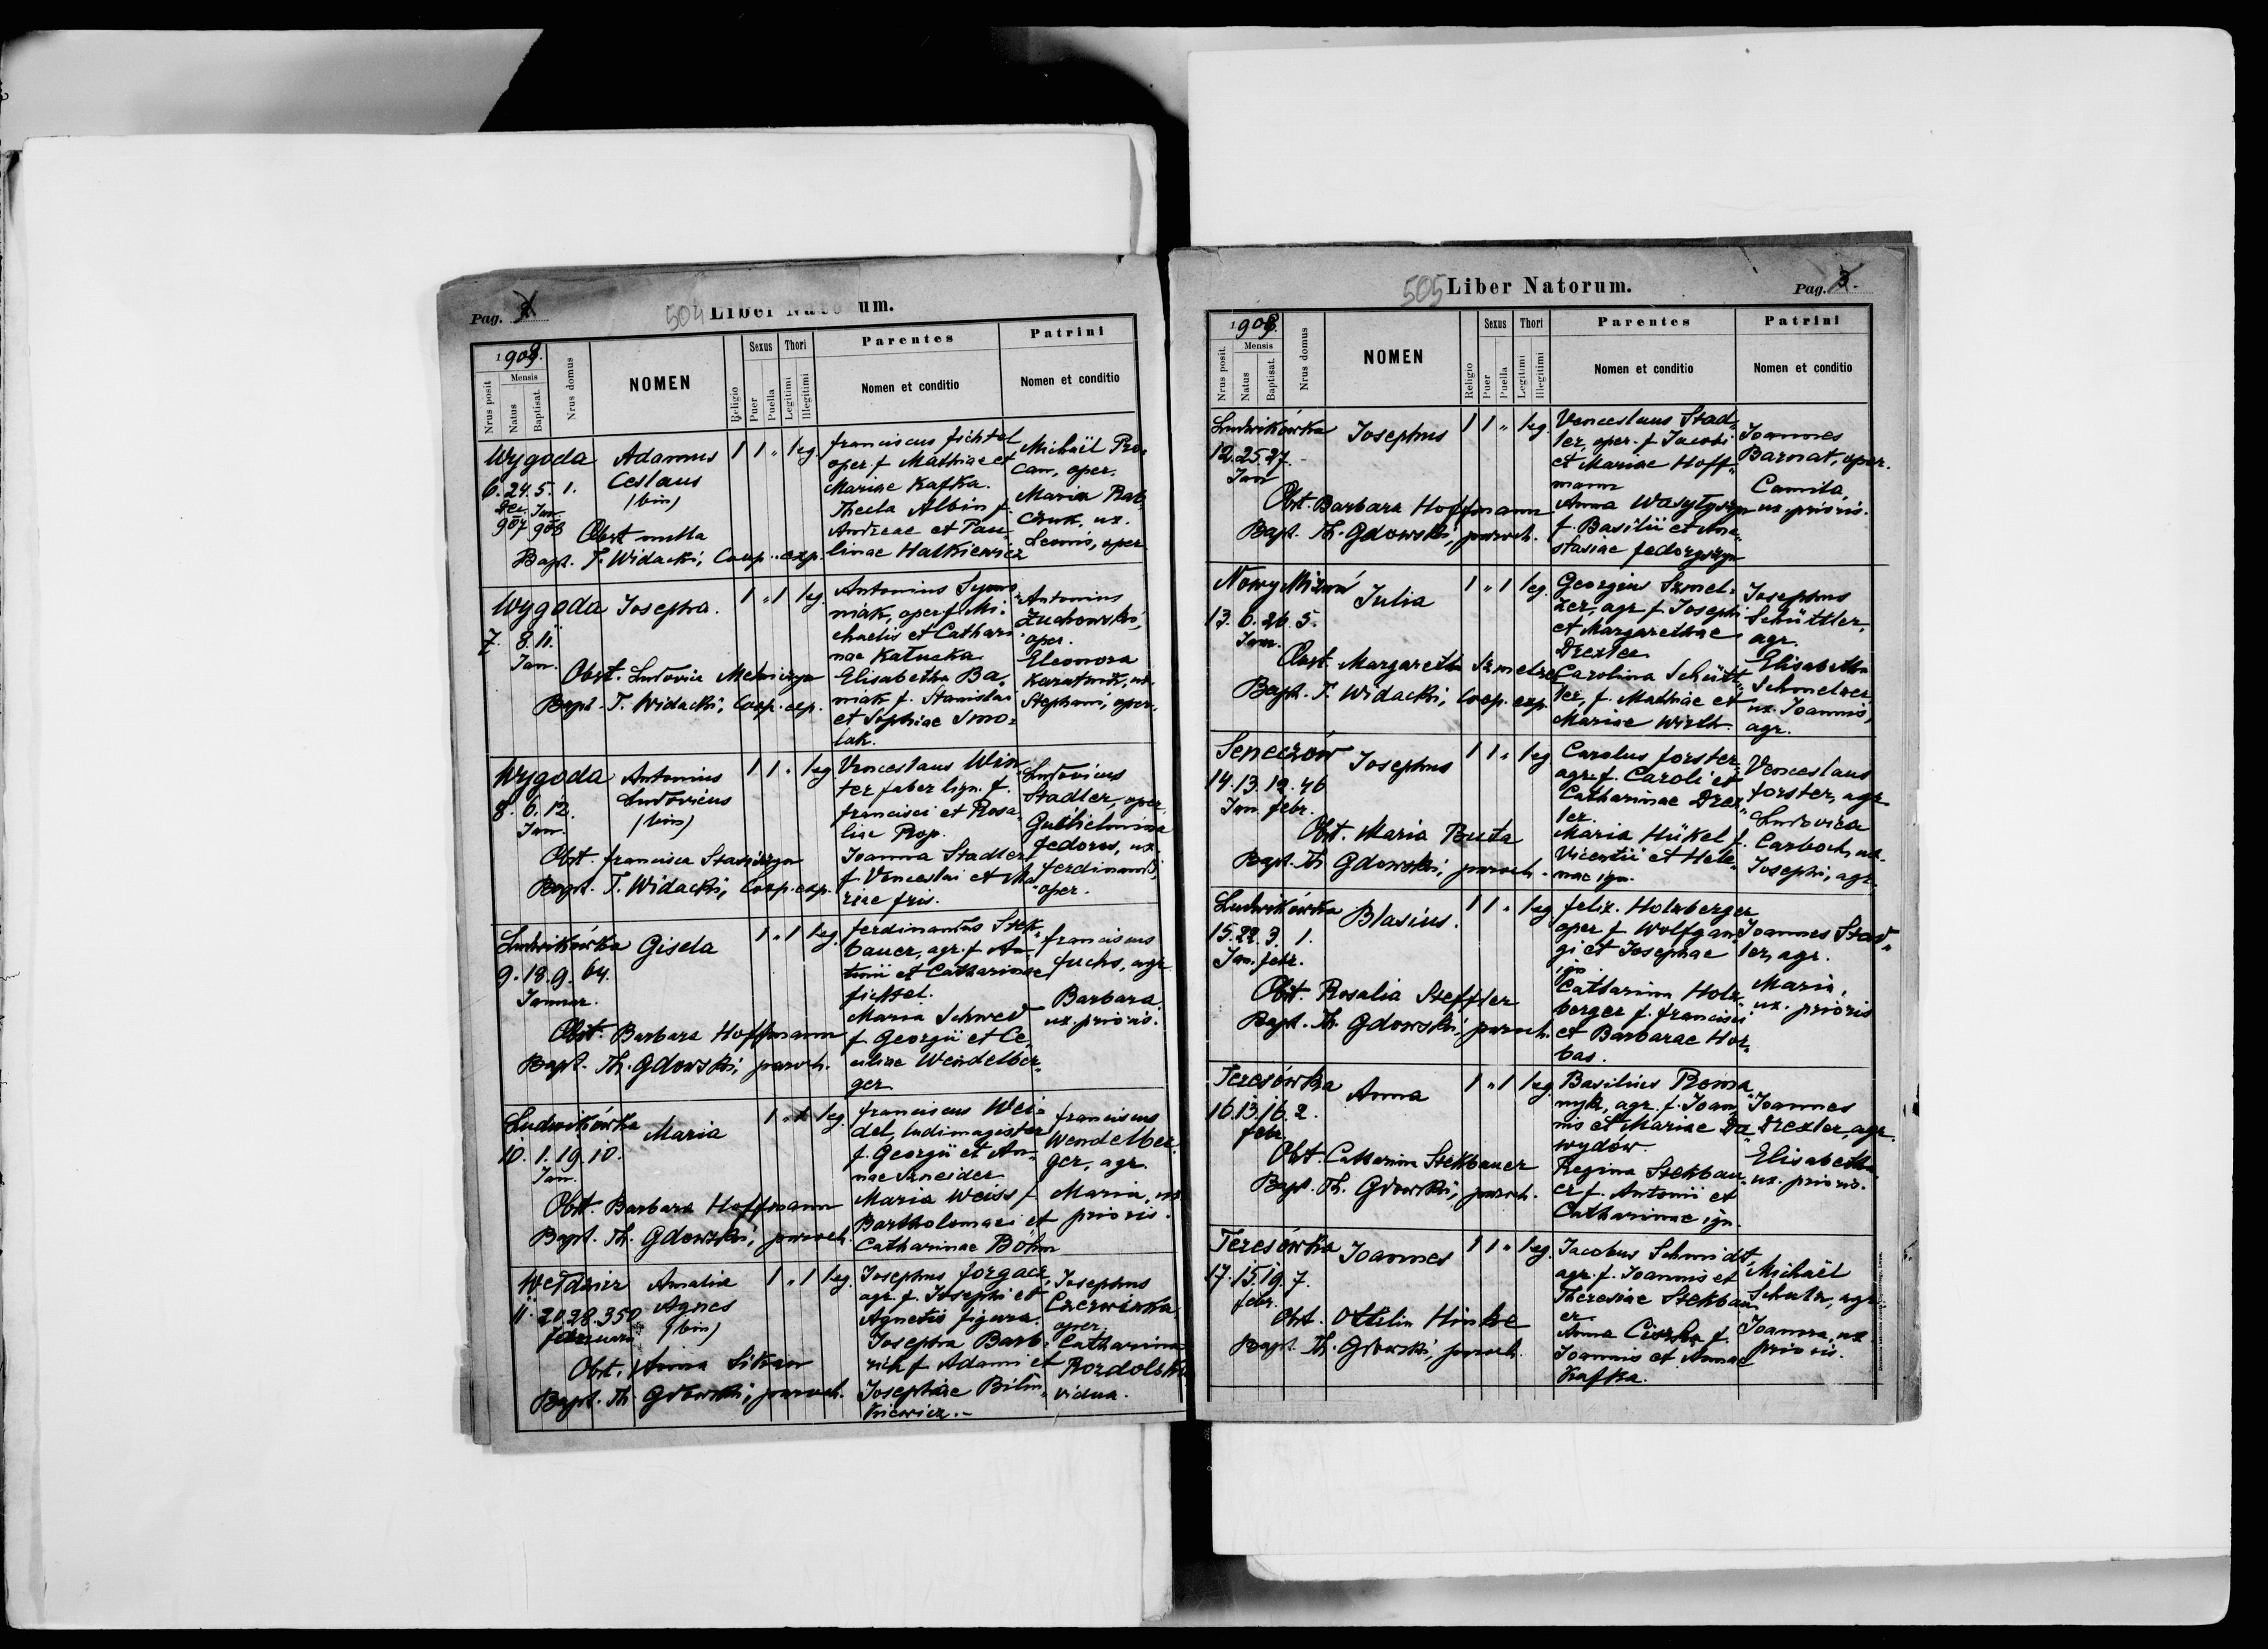 Pag.
504 Liber Nato um.
1908.
Nrus posit
Mensis
Natus
Baptisat.
Nrus domus
NOMEN
Religio
Sexus
Puer
Puella
Thori
Legitimi
Illegitimi
Parentes
Nomen et conditio
Patrini
Nomen et conditio
Wygoda
6. 24. 5. 1.
Dec. Jan.
907 908
Adamus
Ceslaus
(bin)
Obst. nulla
Bapt. T. Widacki, Coop. exp.
1 1 " leg.
Franciscus Fichtel
oper. f. Mathiae et
Mariae Kafka.
Thecla Albin f.
Andreae et Pau-
linae Hatkiewicz
Michaël Pro-
can, oper.
Maria
czuk, ux.
Leonis, oper.
Wygoda
7. 8. 11.
Jan.
Josepha.
Obst. Ludovica
Bapt. T. Widacki, Coop. exp.
1 " 1 leg.
Antonius Syms
niak, oper. f. Mi-
chaelis et Cathari-
nae Katucka
Elisabetha Ba-
niak f. Stanislai
et Sophiae Smo-
lak.
Antonius
Żuchowski,
oper.
Eleonora
ux.
Stephani, oper.
Wygoda
8. 6. 12.
Jan.
Antonius
Ludovicus
(bin)
Obst. Francisca
Bapt. T. Widacki, Coop. exp.
1 1 " leg.
Venceslaus Win-
ter faber lign. f.
Francisci et Rosa-
liae Prop.
Joanna Stadler
f. Venceslai et Ma-
riae Fris.
Ludovicus
Stadler, oper.
Guilhelmina
Fedorus, ux.
Ferdinandi,
oper.
Ludwikówka
9. 18. 9. 64.
Januar.
Gisela
Obst. Barbara Hoffmann
Bapt. Th. Gdowski, paroch.
1 " 1 leg.
Ferdinandus Stek-
bauer, agr. f. An-
tonii et Catharinae
Fichtel.
Maria Schwed
f. Georgii et Ce-
ciliae Wendelber-
ger
Franciscus
Fuchs, agr.
Barbara
ux. prioris.
Ludwikówka
10. 1. 19. 10.
Jan.
Maria
Obst. Barbara Hoffmann
Bapt. Th. Gdowski, paroch.
1 " 1 leg.
Franciscus Wei-
del, ludimagister
f. Georgii et An-
nae Szneider
Maria Weiss f.
Bartholomaei et
Catharinae Böhm
Franciscus
Wendelber-
ger, agr.
Maria, ux.
prioris.
Wełdzirz
11. 20. 28. 350
Februarii
Amalia
Agnes
(bin)
Obst. Anna Sikan
Bapt. Th. Gdowski, paroch.
1 " 1 leg.
Josephus Forgacz,
agr. f. Josephi et
Agnetis Figura.
Josepha Barb-
rich f. Adami et
Josephae Bilin-
kiewicz.-
Josephus
Czerwinka
oper.
Catharina
Rozdolska
vidua.
505 Liber Natorum.
Pag. 3.
1908.
Nrus posit.
Mensis
Natus
Baptisat.
Nrus domus
NOMEN
Religio
Sexus
Puer
Puella
Thori
Legitimi
Illegitimi
Parentes
Nomen et conditio
Patrini
Nomen et conditio
Ludwikówka
12. 25. 27. -
Jan
Josephus
Obst. Barbara Hoffmann
Bapt. Th. Gdowski, paroch.
1 1 " leg.
Venceslaus Stad-
ler, oper. f. Jacobi
et Mariae Hoff-
mann
Anna Wasylyszyn
f. Basilii et Ana-
stasiae Fedoryszyn
Joannes
Barnat, oper.
Camila,
ux. prioris.
Nowy Mizuń
13. 6. 26. 5.
Jan.
Julia
Obst. Margaretha Szmelzer
Bapt. T. Widacki, Coop. exp.
1 " 1 leg.
Georgius Szmel-
zer, agr. f. Josephi
et Margarethae
Drexler
Carolina Schütt-
ler, f. Mathiae et
Mariae Wirth.
Josephus
Schüttler,
agr.
Elisabetha
Schmelzer
ux. Joannis,
agr.
Seneczów
14. 13. 19. 46
Jan. Febr.
Josephus
Obst. Maria Buta
Bapt. Th Gdowski, paroch.
1 1 " leg
Carolus Forster,
agr. f. Caroli et
Catharinae Drex-
ler.
Maria Hükel f.
Vicentii et Hele-
nae ign.
Venceslaus
Forster, agr
Ludovica
Carboch, ux.
Josephi, agr.
Ludwikówka
15. 22. 3. 1.
Jan. Febr.
Blasius.
Obst. Rosalia Steffler
Bapt. Th. Gdowski, paroch.
1 1 " leg
Felix Holzberger
oper f. Wolfgan-
gi et Josephae
ign.
Catharina Holz-
berger f. Francisci
et Barbarae Hor-
bas.
Joannes Stad-
ler, agr.
Maria,
ux. prioris
Teresówka
16. 13. 16. 2.
Febr.
Anna
Obst. Catharina Stekbauer
Bapt. Th. Gdowski, paroch.
1 " 1 leg
Basilius Roma
nyk, agr. f. Joan-
nis et Mariae Da-
wydów.
Regina Stekbau-
er f. Antonii et
Catharinae ign.
Joannes
Drexler, agr.
Elisabetha
ux. prioris.
Teresówka
17. 15. 19. 7.
Febr.
Joannes
Obst. Ottilia Hinke
Bapt. Th. Gdowski, paroch.
1 1 " leg.
Jacobus Schmidt,
agr. f. Joannis et
Theresiae Stekbau
er
Anna Ciszka f.
Joannis et Annae
Kafka.
Michaël
Schulz, agr.
Joanna, ux
prioris.